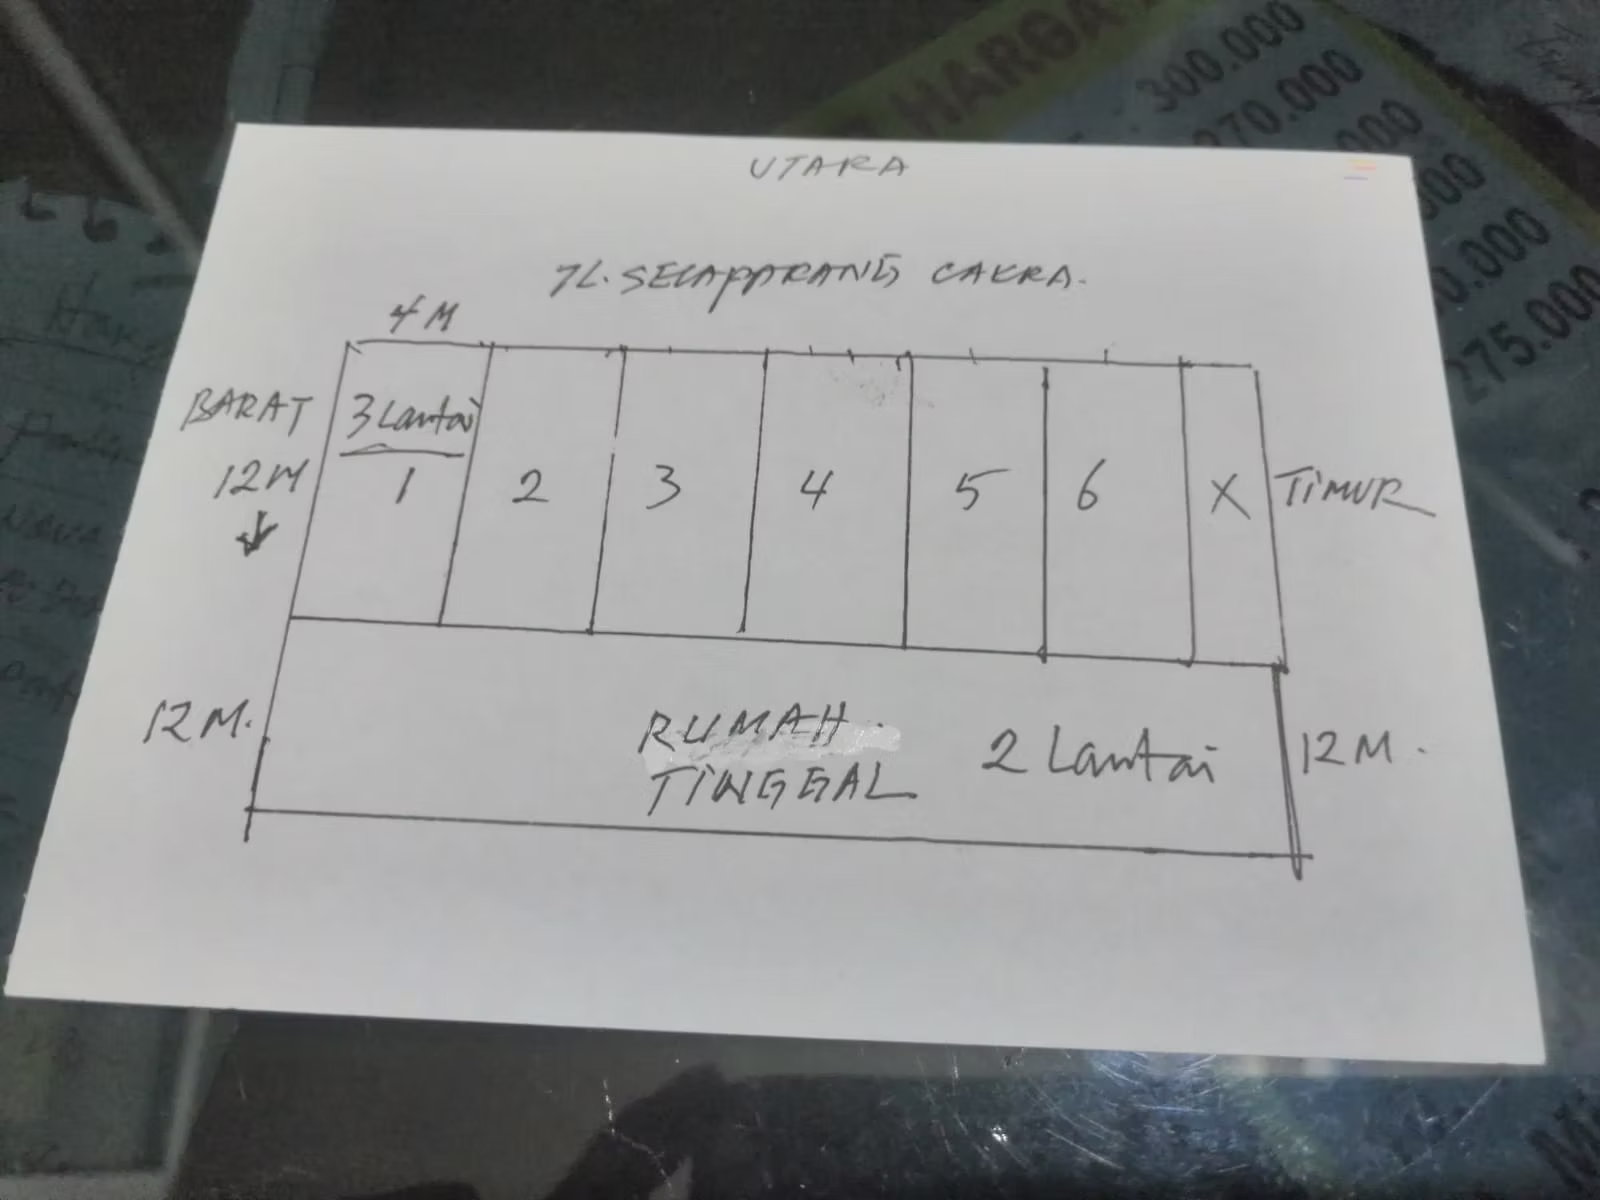 UTARA
JL. SELAPPARANG CAKRA.
4 M
BARAT
12M
3 Lantai
1
2
3
4
5
6
X
TIMUR
12 M.
RUMAH
TINGGAL
2 Lantai
12 M.
HARGA
300.000
270.000
000
000
0.000
275.000